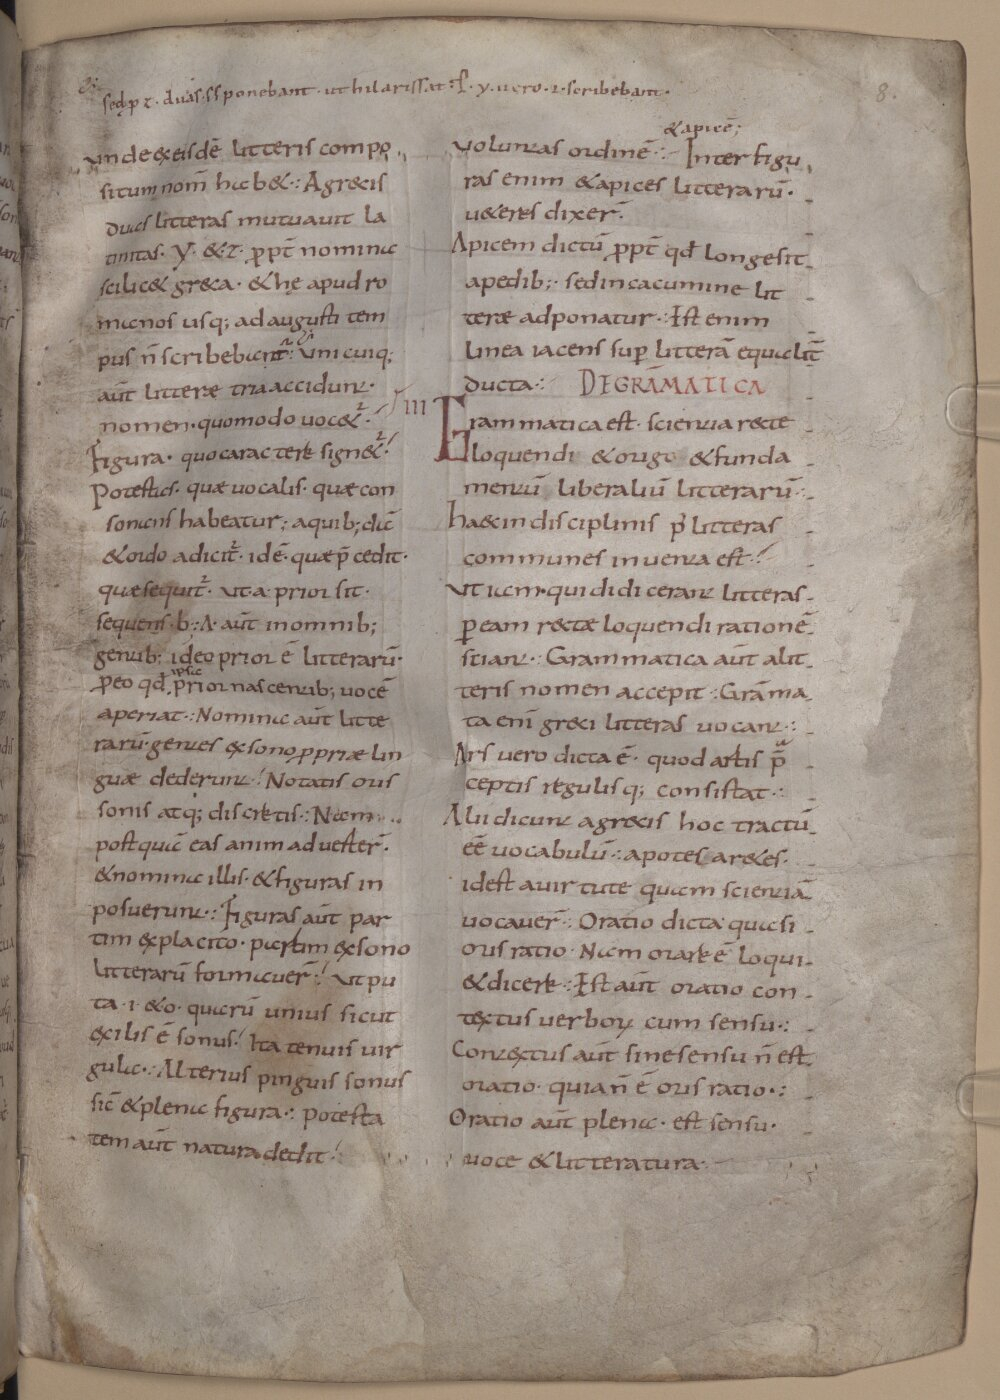 sed p z · duas ss ponebant · ut hilarissat · y · uero · i · scribebant ·
8.
unde & ex eisdē litteris compo
situm nom̄ hab& : A grecis
duas litteras mutuauit la
tinitas · y · & · z · ꝓpt̄ nomina
scilic& greca · & hę apud ro
manos usq; ad augusti tem
pus n̄ scribebant : Unicuiq;
aūt litterae tria accidunt ·
nomen · quomodo uoc&
Figura · quo caractere sign&
Potestas · quae uocalis · quae con
sonans habeatur ; a quib; dic̄
& ordo adicit̄ · idē · quae p̄cedit ·
quae sequit̄ · ut · a · prior sit ·
sequens · b : A · aūt in omnib;
gentib; ideo prior ē litterarū ·
ipsa
ꝑeo qđ prior nascentib; uocē
aperiat : Nomina aūt litte
rarū · gentes ex sono ꝓpriae lin
guae dederunt : Notatis oris
sonis atq; discretis : Nam
postquā eas animaduester̄ ·
& nomina illis · & figuras in
posuerunt : Figuras aūt par
tim ex placito · partim ex sono
litterarū formauer̄ : ut pu
ta · i · & o · quarū unius sicut
exilis ē sonus : Ita tenuis uir
gula : Alterius pinguis sonus
sic̄ & plena figura : potesta
tem aūt natura dedit :
& apicē ;
uoluntas ordinē : Inter figu
ras enim & apices litterarū ·
u&eres dixer̄ ·
Apicem dictū ꝓpt̄ qđ longe sit
a pedib; · sed in cacumine lit
terae adponatur : Est enim
linea iacens suꝑ litterā equalit̄
ducta : DE GRAMMATICA
III Grammatica est · scientia recte
loquendi & origo & funda
mentū liberaliū litterarū :
haec in disciplinis p̄ litteras
communes inuenta est :
Ut iam · qui didicerant litteras
ꝑ eam recte loquendi rationē
sciant : Grammatica aūt a lit
teris nomen accepit : Grāma
ta enī greci litteras uocant :
Ars uero dicta ē · quod artis p̄
ceptis regulisq; consistat :
Alii dicunt a grecis hoc tractū
eē uocabulū : apo tes ar&es ·
id est a uirtute quam scientiā
uocauer̄ : Oratio dicta quasi
oris ratio · Nam orare ē loqui
& dicere : Est aūt oratio con
textus uerboꝝ cum sensu :
Contextus aūt sine sensu n̄ est
oratio · quia n̄ ē oris ratio :
Oratio aūt plena · est sensu ·
uoce & litteratura